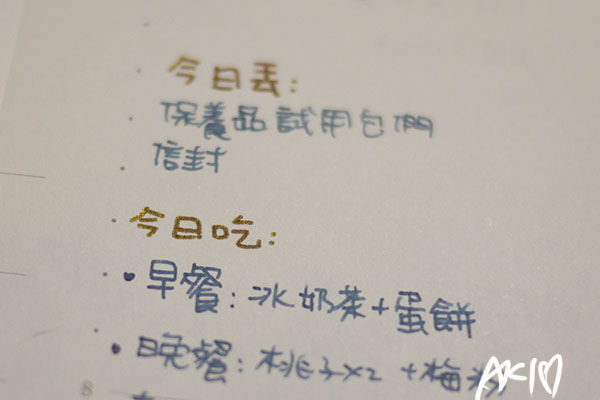 今日丟:
保養品試用包們
信封
今日吃:
早餐:冰奶茶+蛋餅
晚餐:桃子x2+梅
8
AKI